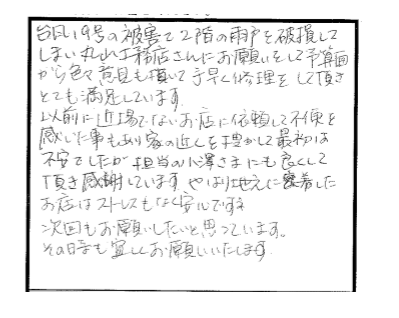 台風19号の被害で2階の雨戸を破損して
しまい丸山工務店さんにお願いをして予算面
から色々意見も頂いて手早く修理をして頂き
とても満足しています。
以前に近場でないお店に依頼して不便を
感じた事もあり家の近くを お最初は
不安でしたが担当の小澤さまにも良くして
頂き感謝しています。やはり地元に密着した
お店はストレスもなく安心ですネ
次回もお願いしたいと思っています。
その時も宜しくお願いいたします。